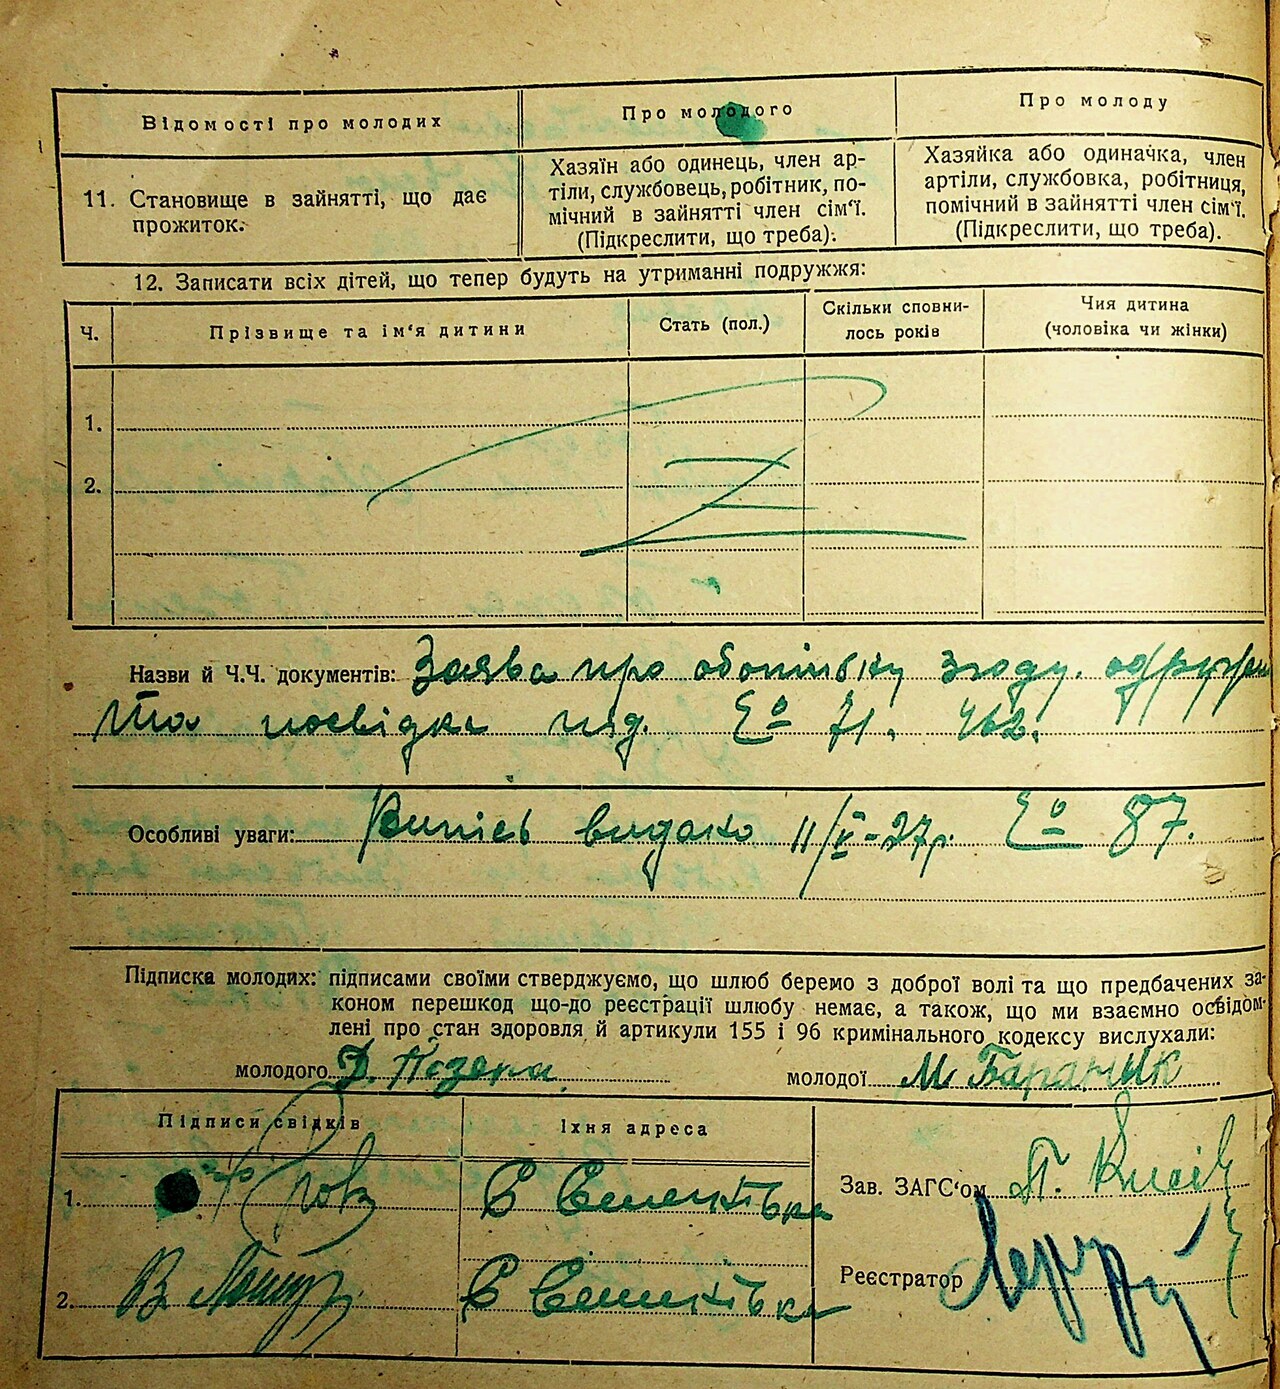 Відомості про молодих
Про молодого
Про молоду
11. Становище в зайнятті, що дає
прожиток.
Хазяїн або одинець, член ар-
тіли, службовець, робітник, по-
мічний в зайнятті член сім‘ї.
(Підкреслити, що треба).
Хазяйка або одиначка, член
артіли, службовка, робітниця,
помічний в зайнятті член сім‘ї.
(Підкреслити, що треба).
12. Записати всіх дітей, що тепер будуть на утриманні подружжя:
Ч.
Прізвище та ім‘я дитини
Стать (пол.)
Скільки сповни-
лось років
Чия дитина
(чоловіка чи жінки)
1.
2.
Назви й Ч.Ч. документів: Заява про обопільну згоду.
та посвідка під. 71. 462.
Особливі уваги: Випись видано 11/V-27р. 87.
Підписка молодих: підписами своїми стверджуємо, що шлюб беремо з доброї волі та що предбачених за-
коном перешкод що-до реєстрації шлюбу немає, а також, що ми взаємно освідом-
лені про стан здоровля й артикули 155 і 96 кримінального кодексу вислухали:
молодого Д.
молодої М Баранник
Підписи свідків
Їхня адреса
1.
С Семенівка
2. В.
С Семенівка
Зав. ЗАГС‘ом П.
Реєстратор